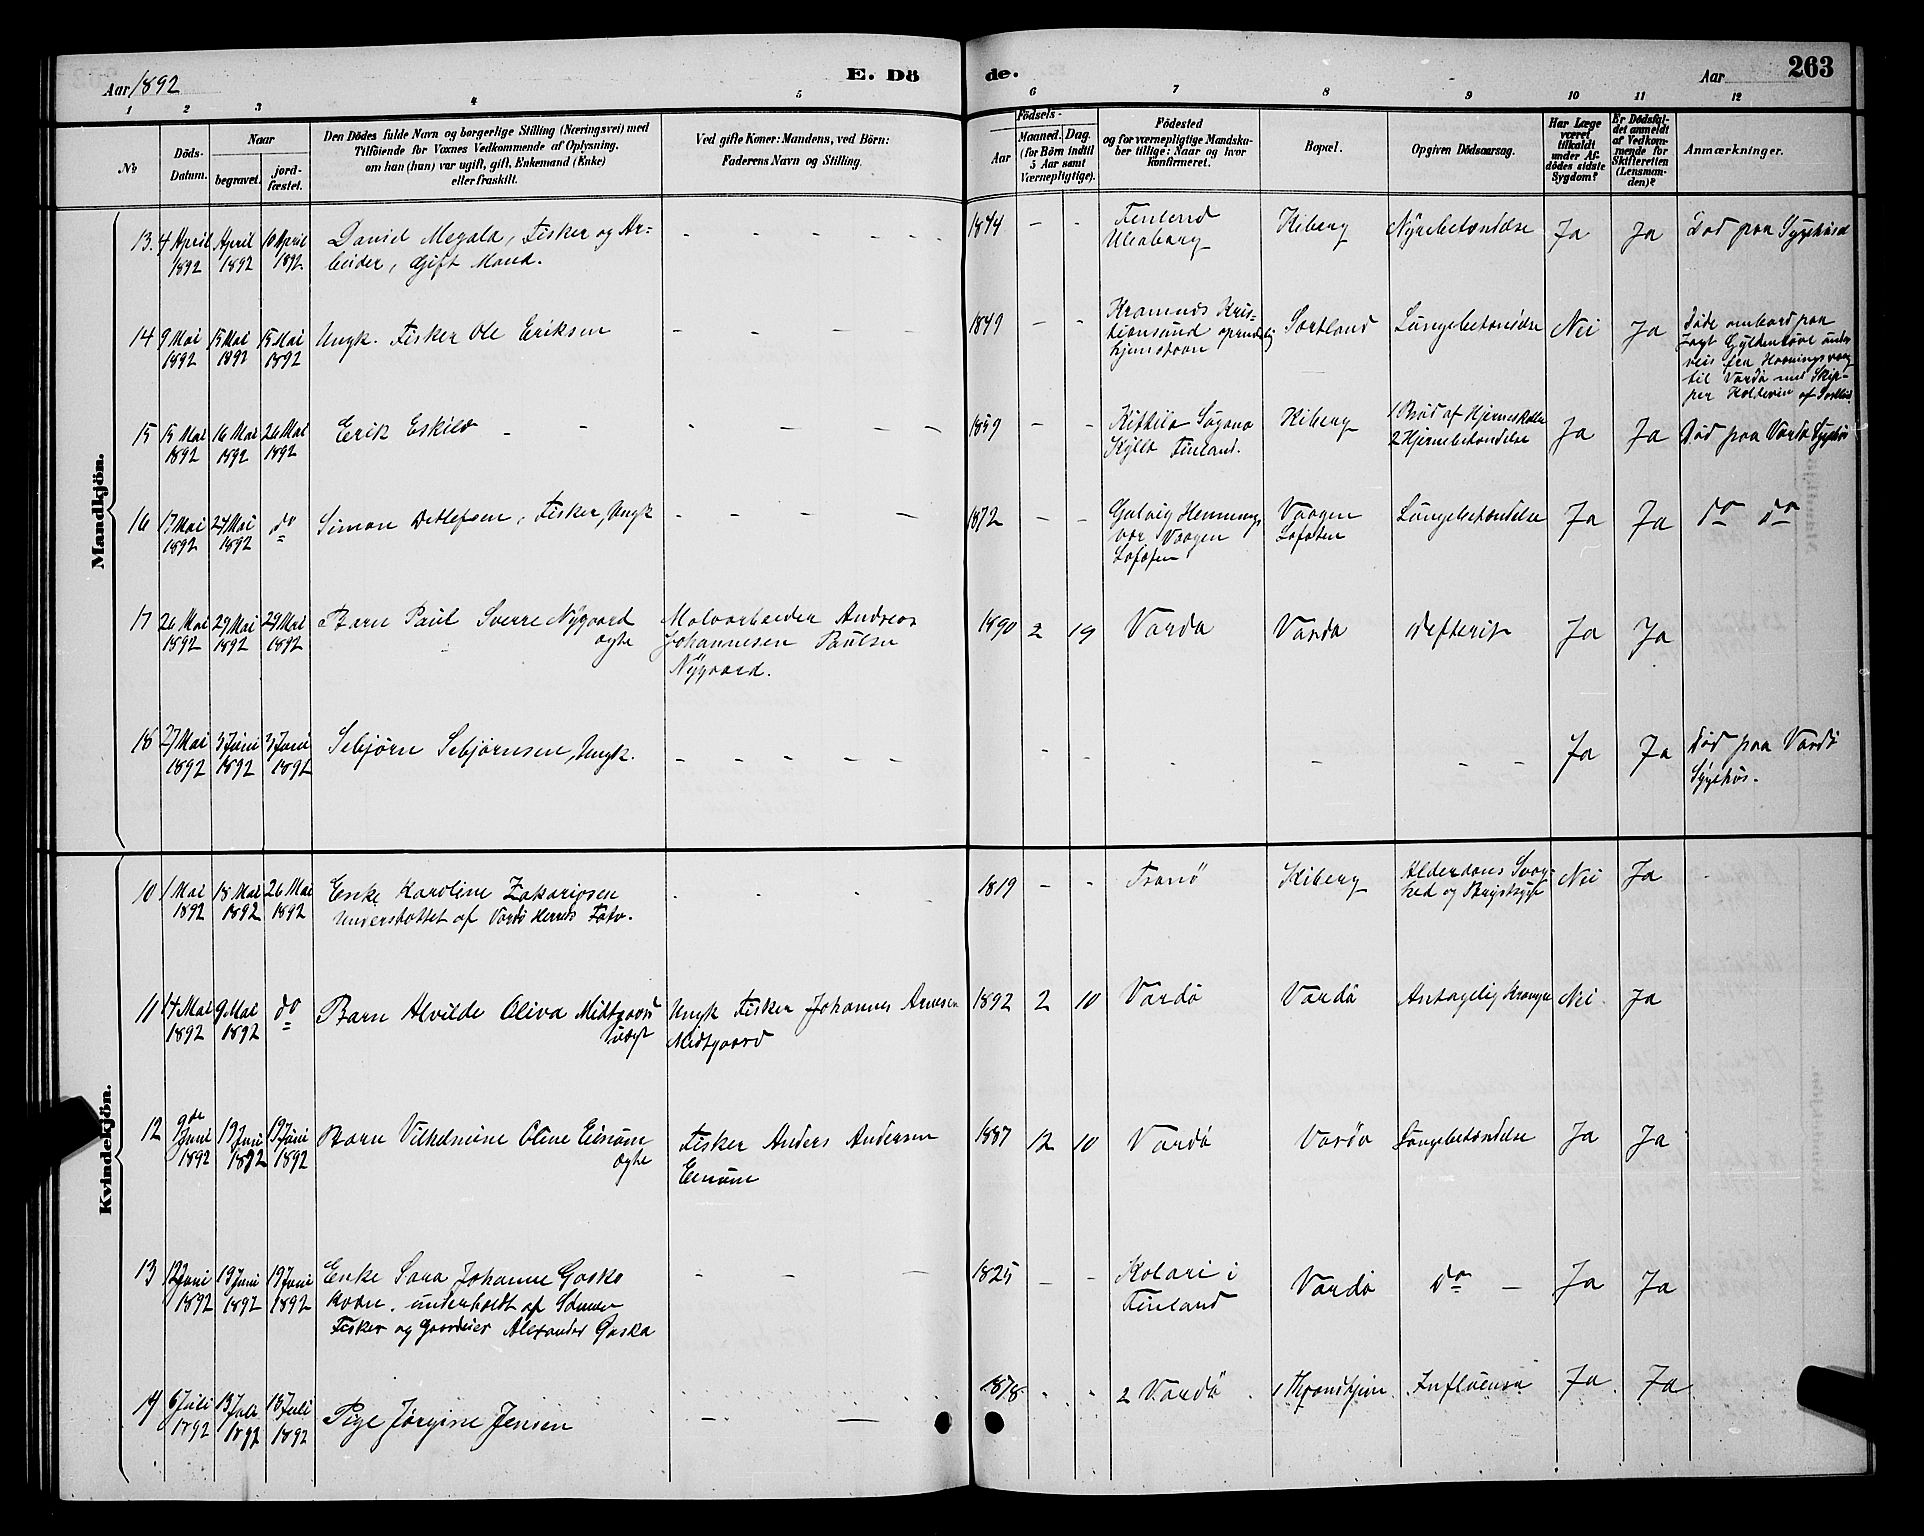 Aar 1892
E. Dö
de.
Aar
263
1 2 3 4 5 6 7 8 9 10 11 12
No
Döds-
Datum.
Naar
begravet.
jord-
fæstet.
Den Dödes fulde Navn og borgerlige Stilling (Næringsvei) med
Tilföiende for Voxnes Vedkommende af Oplysning,
om han (hun) var ugift, gift, Enkemand (Enke)
eller fraskilt.
Ved gifte Koner: Mandens, ved Börn:
Faderens Navn og Stilling.
Födsels-
Aar
Maaned. Dag.
(for Börn indtil
5 Aar samt
Værnepligtige).
Födested
og for værnepligtige Mandska-
ber tillige: Naar og hvor
konfirmeret.
Bopæl.
Opgiven Dödsaarsag.
Har Læge
været
tilkaldt
under Af-
dødes sidste
Sygdom?
Er Dödsfal-
det anmeldt
af Vedkom-
mende for
Skifteretten
(Lensman-
den)?
Anmærkninger.
Mandkjön.
13. 4 April April 10 April
1892 1892 1892
David Megala, Fisker og Ar-
beider, Gift Mand.
1844 - -
Finland
Uleaborg
Kiberg
Nyrebetændelse
Ja
Ja
Død paa Sygehuset
14 9 Mai 15 Mai 15 Mai
1892 1892 1892
Ungk. Fisker Ole Eriksen
1849 - -
Kristiansund
Sortland
Lungebetændelse
Nei
Ja
Døde ombord paa
Jagt Gyldenløve under
veis fra Honningsvaag
til Vardö med Skip-
per
15 15 Mai 16 Mai 26 Mai
1892 1892 1892
Erik Eskilo
1859 - -
Kittila
Finland.
Kiberg
1 Brud af Hjerneskallen
2 Hjernebetændelse
Ja
Ja
Død paa Vardö Sygehus
16 17 Mai 27 Mai do
1892 1892
Simon Detlefsen, Fisker, Ungk
1872 - -
Hennings
vær Vaagen
Lofoten
Vaagen
Lofoten
Lungebetændelse
Ja
Ja
do do
17 26 Mai 29 Mai 29 Mai
1892 1892 1892
Barn Paul Sverre Nygaard
ægte
Andreas
Johannesen Paulsen
Nygaard.
1890 2 19
Vardö
Vardö
Defterit
Ja
Ja
18 27 Mai 3 Juni 3 Juni
1892 1892 1892
Sebjørn Sebjørnsen, Ungk.
Ja
Ja
Død paa Vardö
Sygehus.
Kvindekjön.
10 1 Mai 18 Mai 26 Mai
1892 1892 1892
Enke Karoline Zakariasen
understøttet af Vardö Herreds Fatv.
1819 - -
Tranö
Kiberg
Alderdoms Svag-
hed og Brystsyge
Nei
Ja
11 4 Mai 9 Mai do
1892 1892
Barn Alvilde Oliva Midtgaard
uægte
Ungk Fisker Johannes Arnesen
Midtgaard
1892 2 10
Vardö
Vardö
Antagelig Krampe
Nei
Ja
12 9de Juni 19 Juni 19 Juni
1892 1892 1892
Barn Vilhelmine Oline Einum
ægte
Fisker Anders Andersen
Einum
1887 12 10
Vardö
Vardö
Lungebetændelse
Ja
Ja
13 12 Juni 19 Juni 19 Juni
1892 1892 1892
Enke Sara Johanne Gaska
underholdt af Sønnen
Fisker og Gaardeier Alexander Gaska
1825 - -
Kolari i
Finland
Vardö
do
Ja
Ja
14 6 Juli 13 Juli 18 Juli
1892 1892 1892
Pige Jørgine Jensen
1878
2 Vardö
1 Throndhjem
Influensa
Ja
Ja